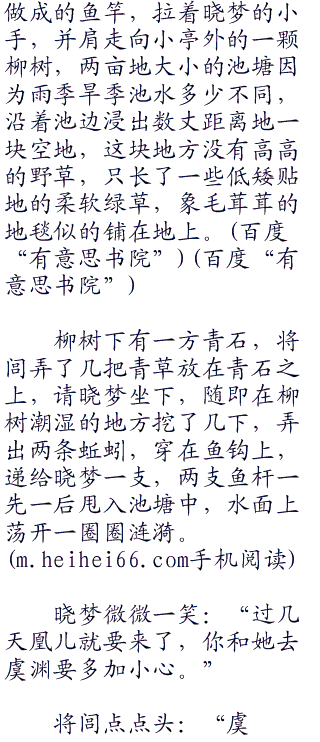 做成的鱼竿，拉着晓梦的小
手，并肩走向小亭外的一颗
柳树，两亩地大小的池塘因
为雨季旱季池水多少不同，
沿着池边浸出数丈距离地一
块空地，这块地方没有高高
的野草，只长了一些低矮贴
地的柔软绿草，象毛茸茸的
地毯似的铺在地上。(百度
“有意思书院”)(百度“有
意思书院”)
柳树下有一方青石，将
闾弄了几把青草放在青石之
上，请晓梦坐下，随即在柳
树潮湿的地方挖了几下，弄
出两条蚯蚓，穿在鱼钩上，
递给晓梦一支，两支鱼杆一
先一后甩入池塘中，水面上
荡开一圈圈涟漪。
(m.heihei66.com手机阅读)
晓梦微微一笑：“过几
天凰儿就要来了，你和她去
虞渊要多加小心。”
将闾点点头：“虞